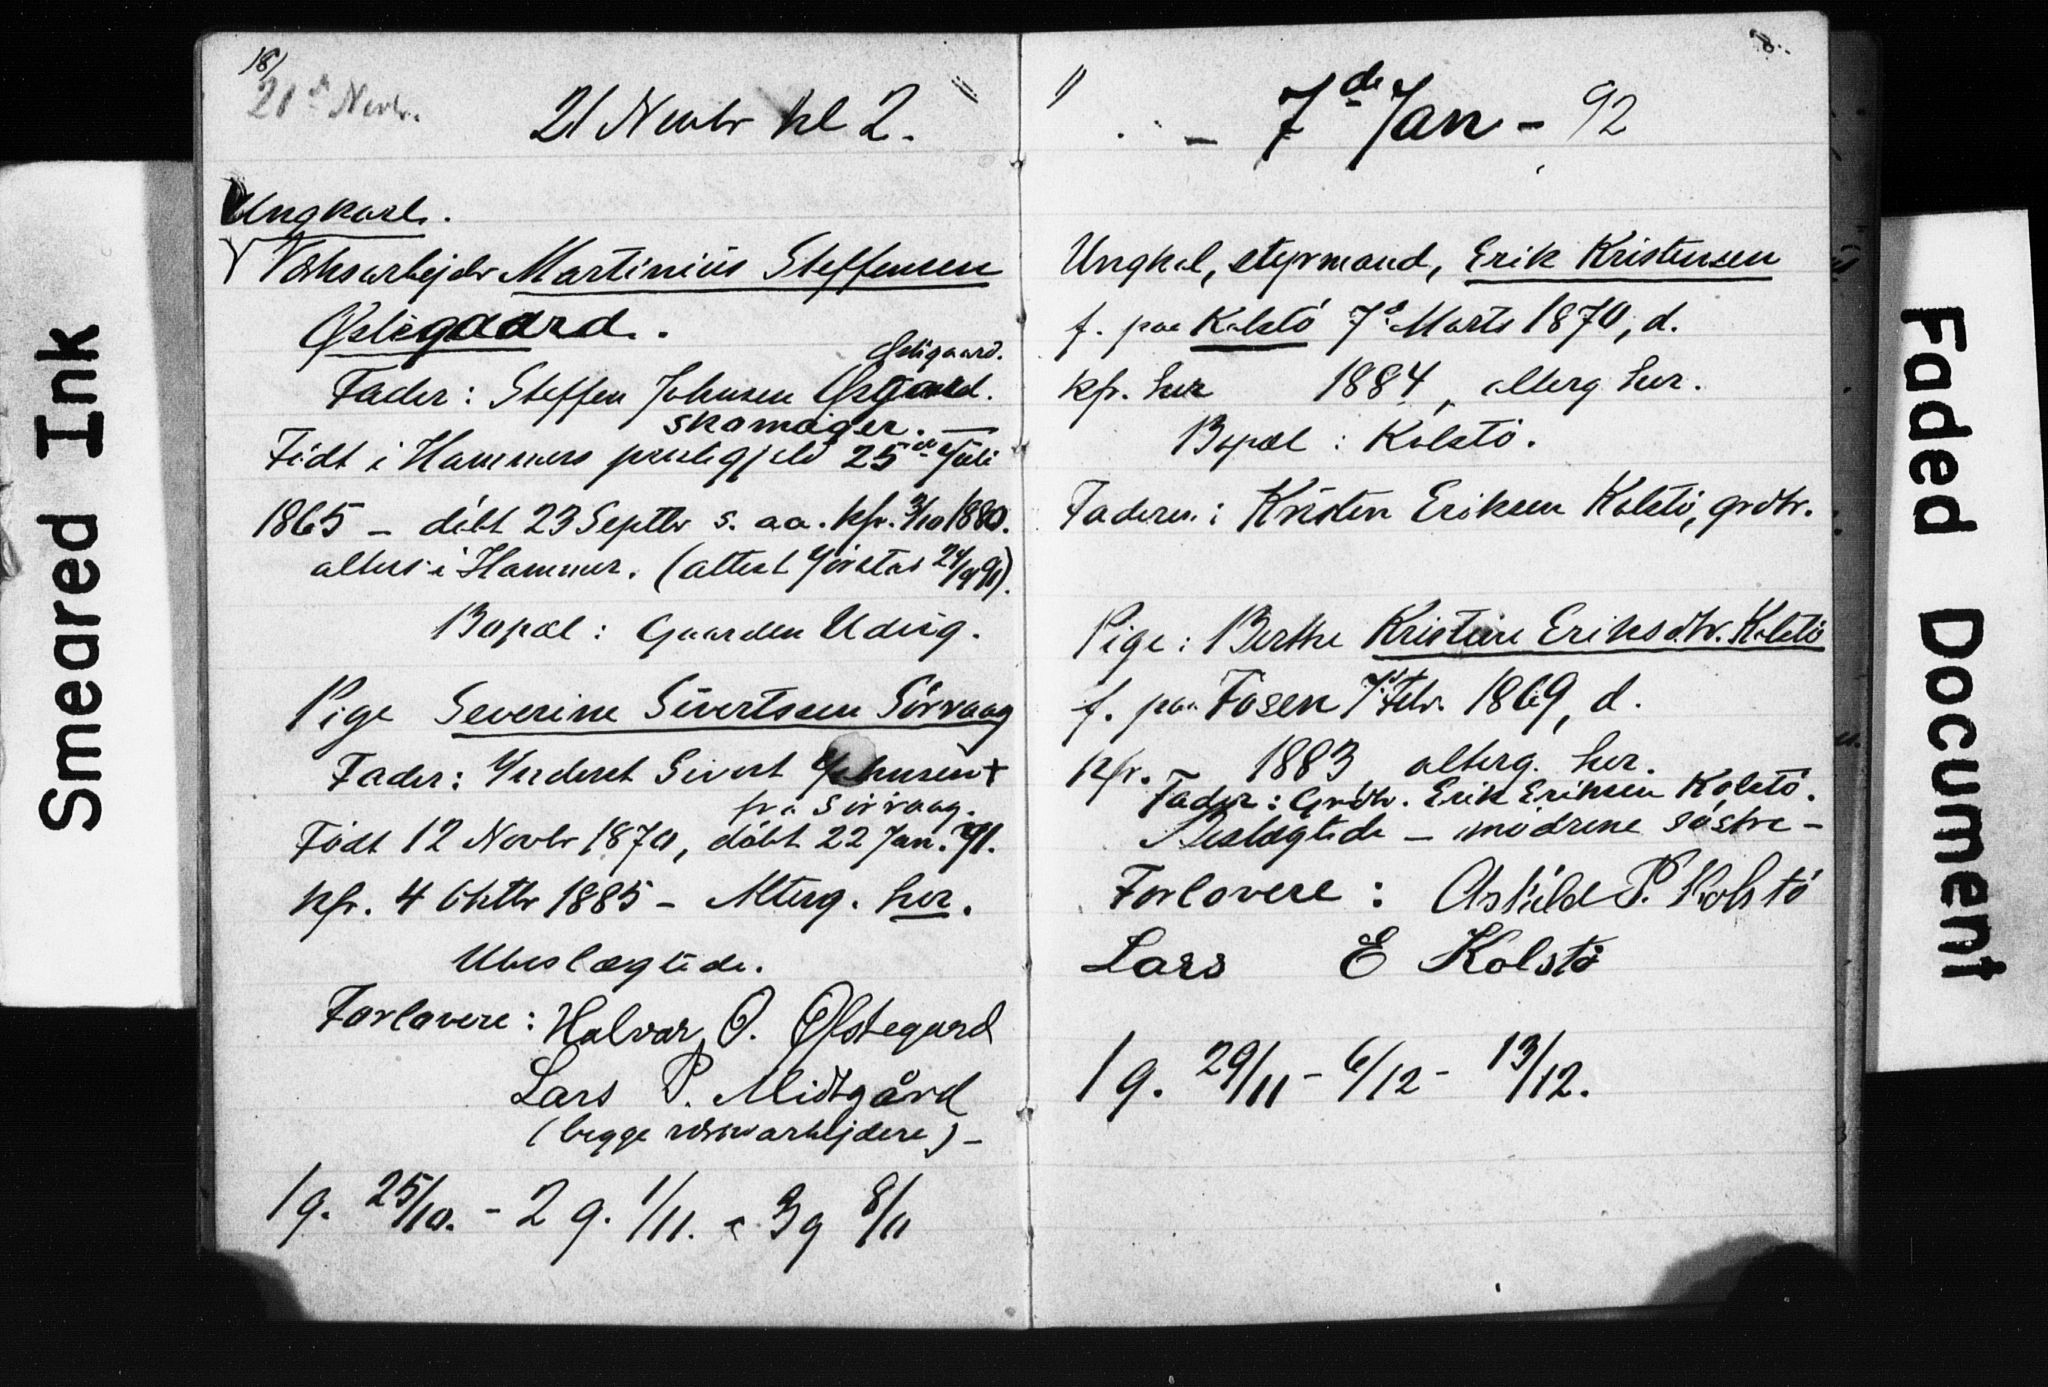 Smeared Ink
18/
21de Novbr.
21 Novbr kl 2.
Ungkarl.
Værksarbejder Martinius Steffensen
Østigaard.
Østigaard.
Fader: Steffen Johnsen Østgaard.
skomager.
Födt i Hammers prestegjeld 25de Juli
1865 – döbt 23 Septbr s. aa. kfr. 3/10 1880.
alters i Hammer. (attest Gjörstad 24/9 91).
Bopæl: Gaarden Uding.
Pige Severine Sivertsen Sörvaag
Fader: Inderst Sivert Johnsen +
fra Sörvaag.
Födt 12 Novbr 1870, döbt 22 Jan. 71.
kfr. 4 Oktbr 1885 – Alterg. her.
Ubeslægtede.
Forlovere: Halvar O. Ølstegard
Lars P. Midtgård
(begge værksarbejdere) –
1 g. 25/10. – 2 g. 1/11. – 3 g 8/11
7de Jan – 92
Ungkel, styrmand, Erik Kristensen
f. paa Kolstö 7de Marts 1870, d.
kfr. her 1884, alterg her.
Bopæl: Kolstö.
Faderen: Kristen Eriksen Kolstö, grdbr.
Pige: Berthe Kristine Eriksdtr. Kolstö
f. paa Fosen 7de Febr. 1869, d.
kfr. 1883, alterg. her.
Fader: Grdbr. Erik Eriksen Kolstö.
Beslægtede – mödrene söstre –
Forlovere: Askild P. Kolstö
Lars E Kolstö
1 g. 29/11 – 6/12 – 13/12.
Faded Document